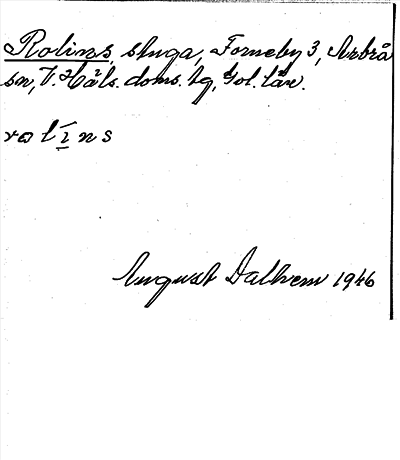 Rolins, stuga, Forneby 3, Arbrå
sn, V. Häls. doms. lg, Gvl. län.
rolīns
August Dalhem 1946